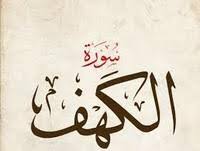 سُورَة
الكهف